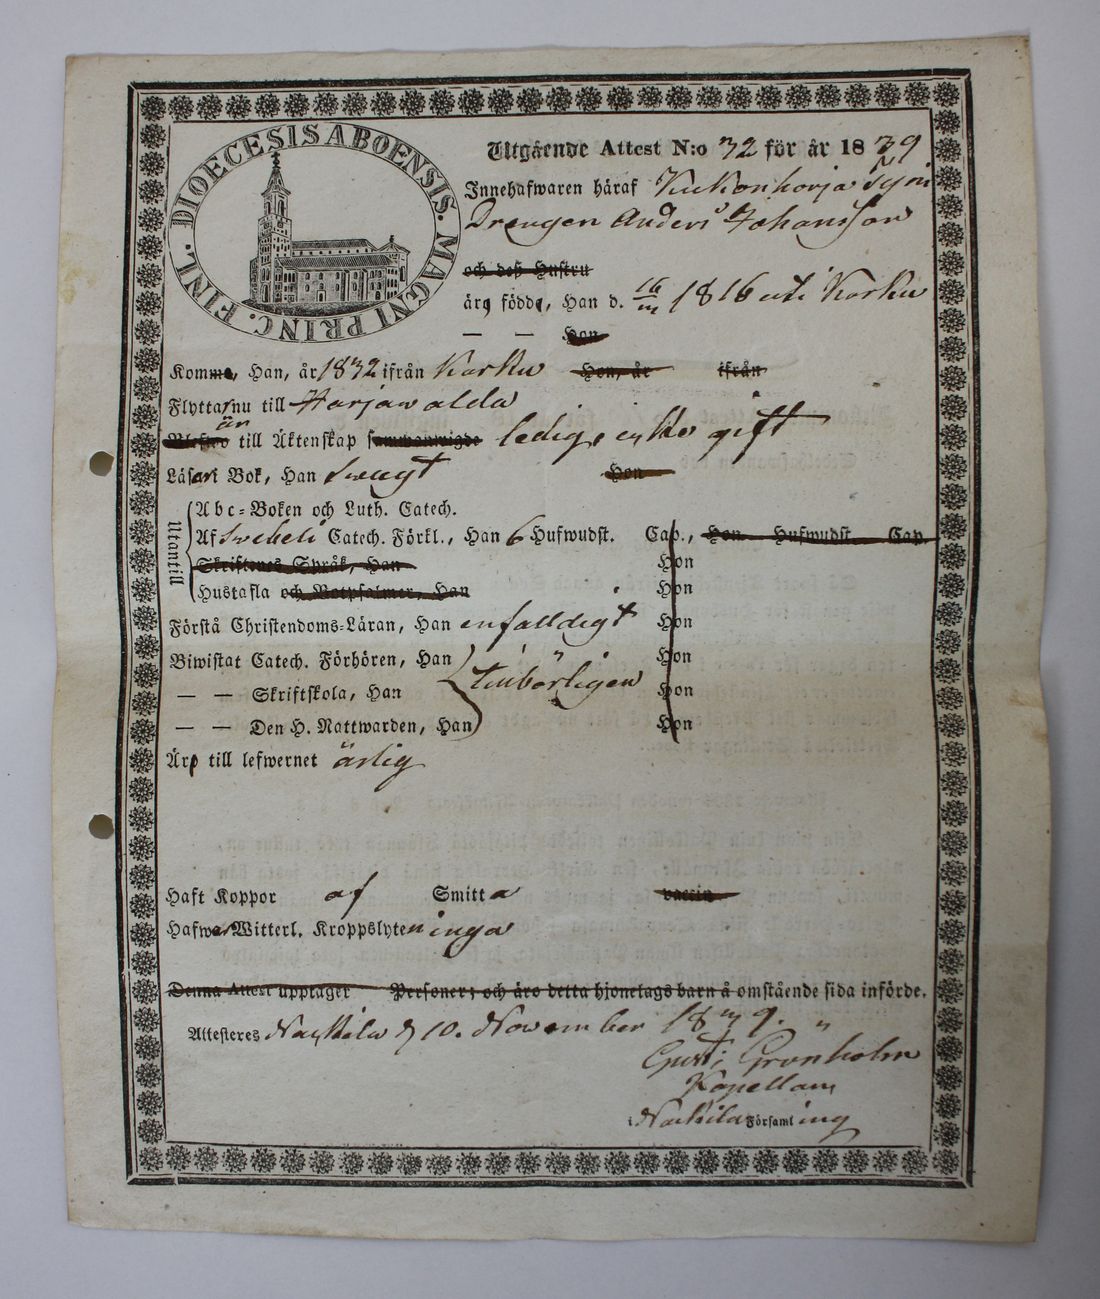 DIOECESIS ABOENSIS. MAGNI PRINC. FINL.
Utgående Attest N:o 32 för år 1839
Innehafwaren häraf
Drengen Anders Johansson
och deß Hustru
äro födde, Han d. 16/ 1816 uti Karku
— — Hon
Komme, Han, år 1832 ifrån Karku Hon, år ifrån
Flyttar nu till Harjawalda
är till Äktenskap sammanwigde ledig, icke gift
Läsa i Bok, Han swagt Hon
Utantill
Abc-Boken och Luth. Catech.
Af Swebeli Catech. Förkl., Han 6 Hufwudst. Cap., Hon Hufwudst. Cap.
Skriftenes Språk, Han Hon
Hustafla och Botpsalmer, Han Hon
Förstå Christendoms-Läran, Han enfaldigt Hon
Biwistat Catech. Förhören, Han Hon
— — Skriftskola, Han tillbörligen Hon
— — Den H. Nattwarden, Han Hon
Äro till lefwernet ärlig
Haft Koppor af Smitta vaccin
Hafwa Witterl. Kroppslyten inga
Denna Attest upptager Personer; och äro detta hjonelags barn å omstående sida införde.
Attesteres Nackila d 10. November 1839.
Gust: Grönholm
Kapellan
i Nackila Församling